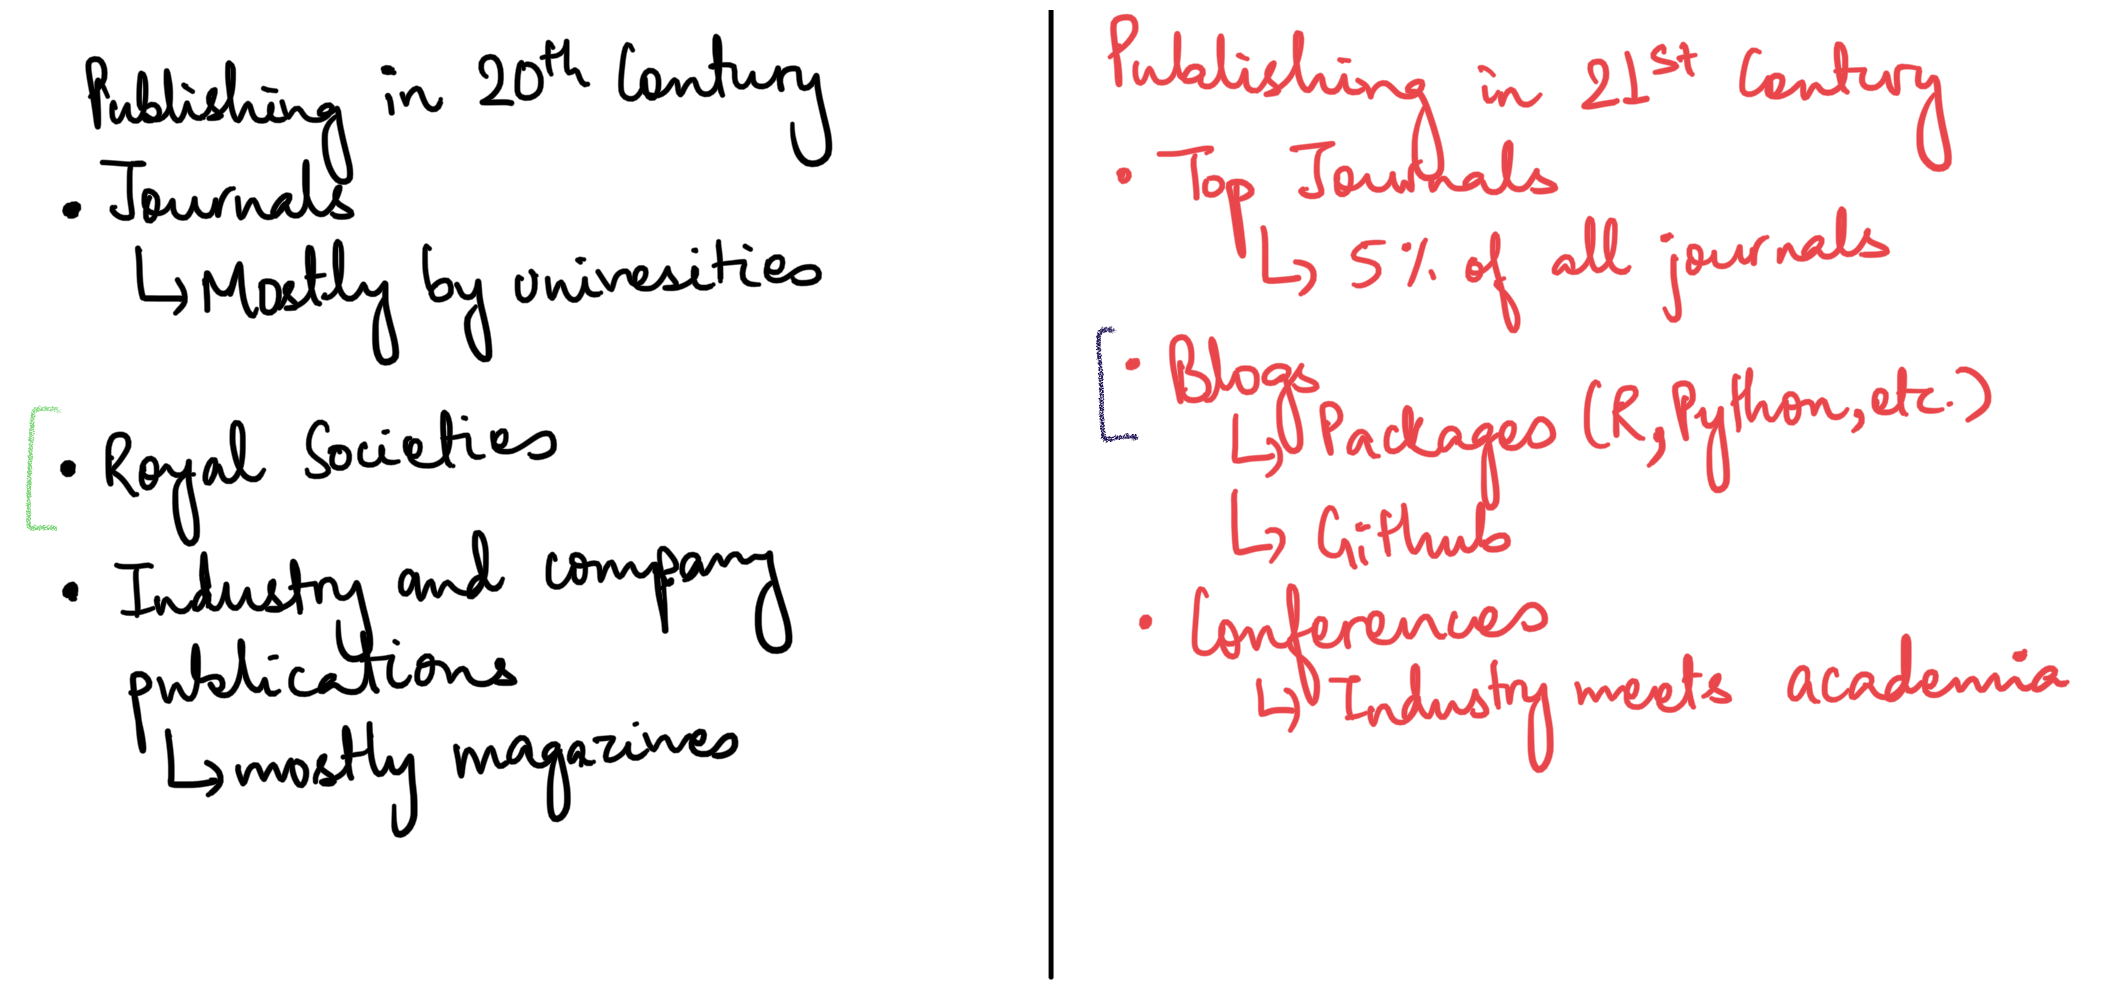 Publishing in 20th Century
• Journals
↳ Mostly by univesities
• Royal Societies
• Industry and company
publications
↳ mostly magazines
Publishing in 21st Century
• Top Journals
↳ 5% of all journals
• Blogs
↳ Packages (R, Python, etc.)
↳ Github
• Conferences
↳ Industry meets academia